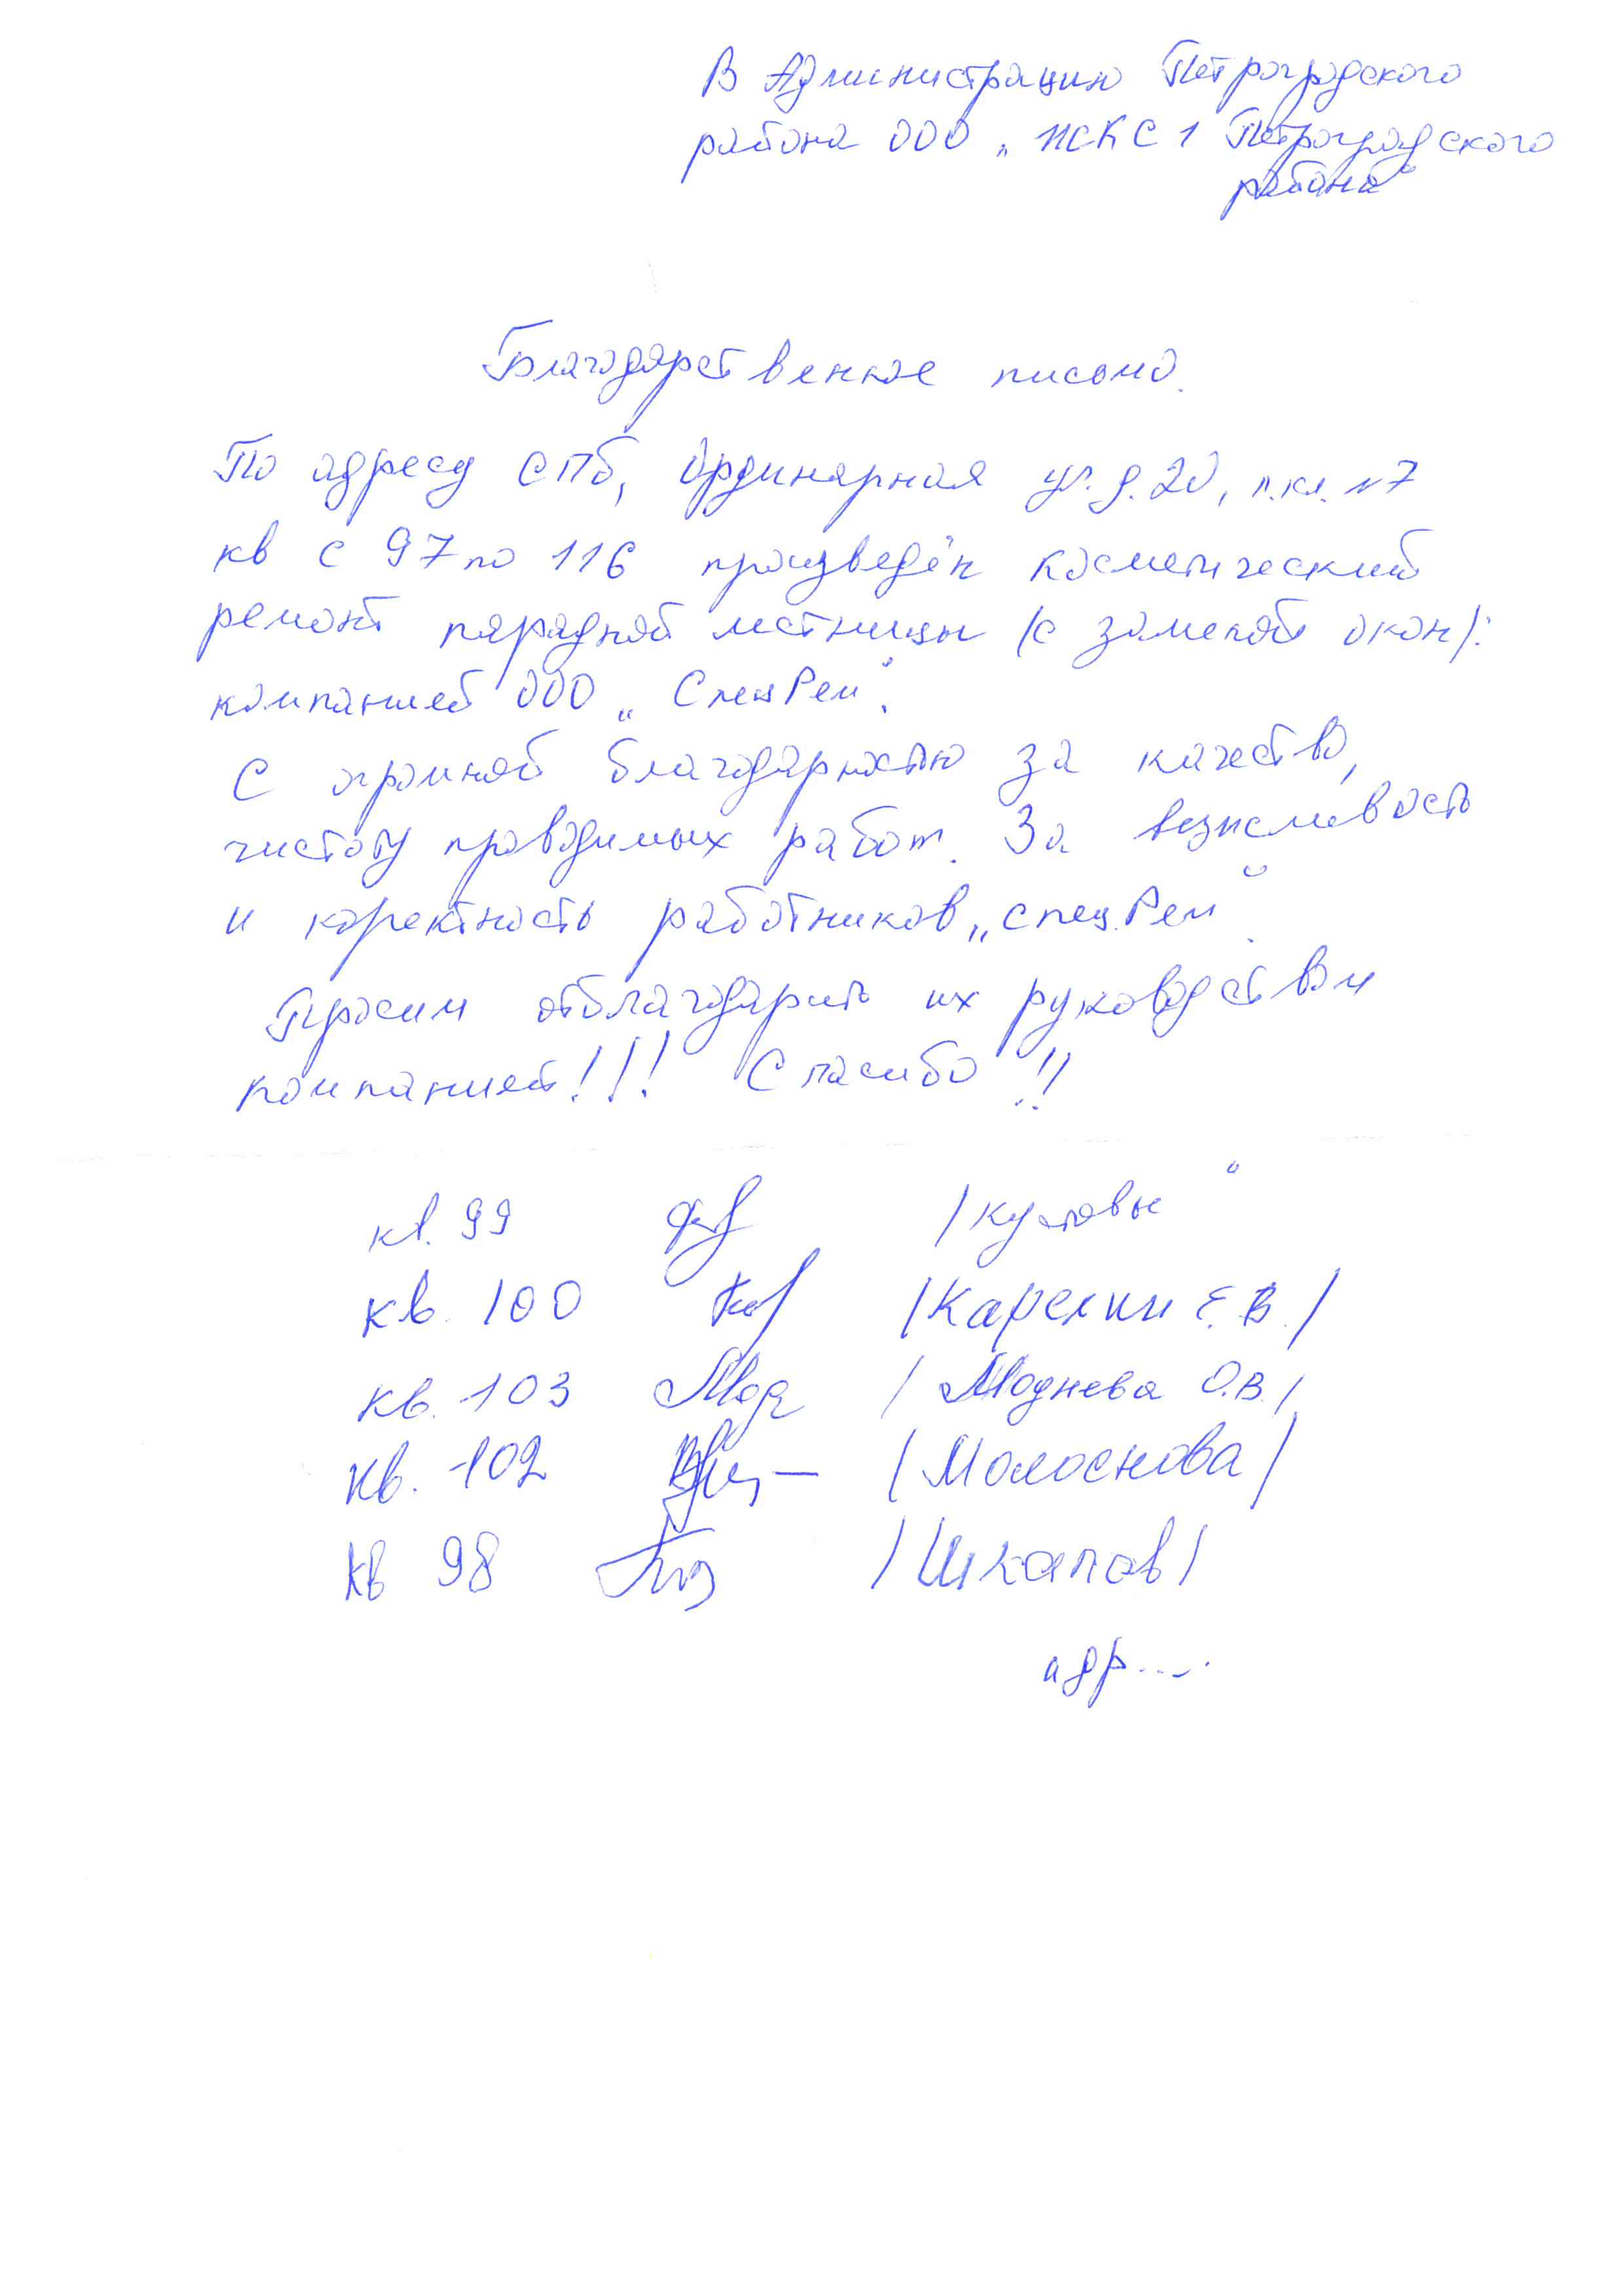 В Администрацию Петроградского
района ООО „ЖКС 1 Петроградского
района"
Благодарственное письмо.
По адресу СПб, Ординарная ул. д. 20, п.кл. №7
кв с 97 по 116 произведён косметический
ремонт парадной лестницы (с заменой окон).
компанией ООО „СпецРем".
С огромной благодарностью за качество,
чистоту проводимых работ. За вежливость
и коректность работников „СпецРем".
Просим отблагодарить их руководством
компанией!!! Спасибо!!
кв. 99
кв. 100 /Карелин Е.В./
кв. 103 /Моднева О.В./
кв. 102 /Молоснова/
кв 98 /Шкапов/
и др....